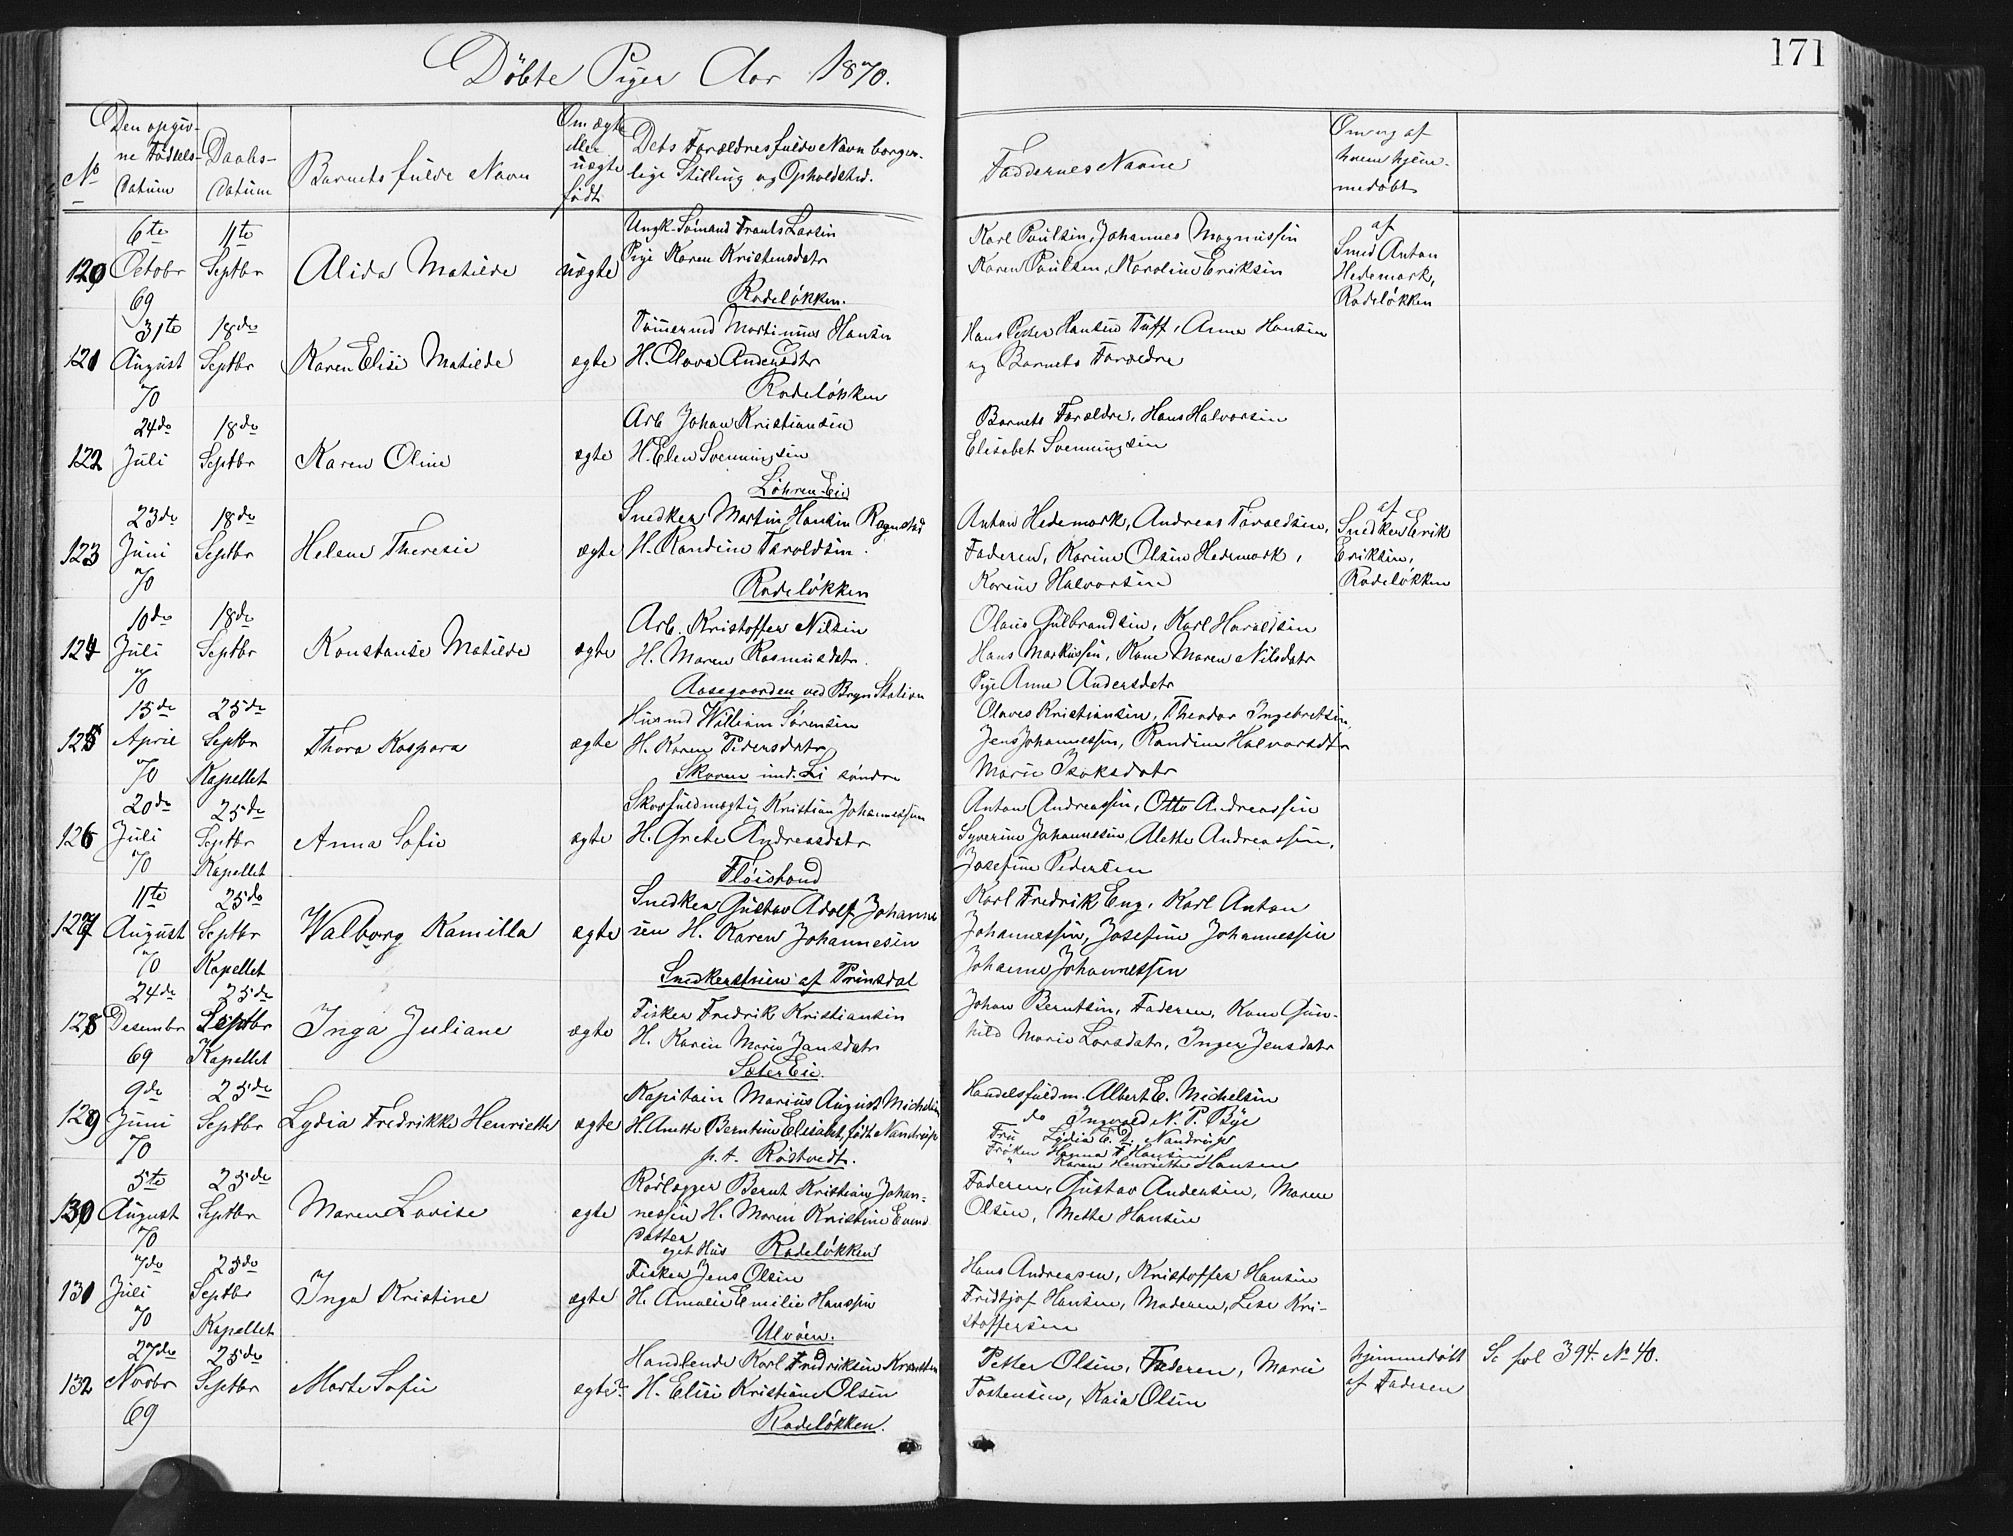 Döbte Piger Aar 1870.
171
No
Den opgiv-
ne Födsels-
Datum
Daabs-
Datum
Barnets fulde Navn
Om ægte
eller
uægte
født
Dets Forældres fulde Navn borger-
lige Stilling og Opholdsted.
Faddernes Navne
Om og af
hvem hjem-
medöbt
120
6te
Octobr
69
11te
Septbr
Alida Matilde
uægte
Ungk. Sömand Frants Larsen
Pige Karen Kristensdatr
Rodelökken.
Karl Paulsen, Johannes Magnussen
Karen Paulsen, Karoline Eriksen
af
Smed Anton
Hedemark,
Rodelökken
121
31te
August
70
18de
Septbr
Karen Elise Matilde
ægte
Tömmermd Martinus Hansen
H. Olava Andersdtr
Rodelökken
Hans Petter Hansen Tuff, Anna Hansen
og Barnets Forældre
122
24de
Juli
18de
Septbr
Karen Oline
ægte
Arb Johan Kristiansen
H. Elen Svenningsen
Löhren-Eie
Barnets Forældre, Hans Halvorsen
Elisabet Svenningsen
123
23de
Juni
70
18de
Septbr
Helene Theresie
ægte
Snedker Martin Hansen Rognstad
H. Randine Taroldsen.
Rodelökken
Anton Hedemark, Andreas Taroldsen,
Faderen, Karine Olsen Hedemark,
Karine Halvorsen
af
Snedker Erik
Eriksen,
Rodelökken
124
10de
Juli
70
18de
Septbr
Konstanse Matilde
ægte
Arb. Kristoffer Nilsen
H. Maren Rasmusdatr.
Aasegaarden ved Bryn Station
Olaus Gulbrandsen, Karl Haraldsen
Hans Markussen, Kone Maren Nilsdatr
Pige Anne Andersdatr
125
15de
April
70
25de
Septbr
Kapellet
Thora Kaspara
ægte
Husmd William Sörensen
H. Karen Pedersdatr
Skaren und. Li söndre
Olaves Kristiansen, Theodor Ingebretsen
Jens Johannessen, Randine Halvorsdtr
Marie Isaksdatr
126
20de
Juli
70
25de
Septbr
Kapellet
Anna Sofie
ægte
Skovfuldmægtig Kristian Johannessen
H. Grete Andreasdatr
Flöistad
Anton Andreassen, Otto Andreassen
Syverine Johannesen, Alette Andreassen,
Josefine Pedersen
127
11te
August
70
25de
Septbr
Kapellet
Walborg Kamilla
ægte
Snedker Gustav Adolf Johannes
sen H. Karen Johannesen
Snedkerstuen af Prinsdal
Karl Fredrik Eng, Karl Anton
Johannessen, Josefine Johannessen
Johanne Johannessen
128
24de
Desembr
69
25de
Septbr
Kapellet
Inga Juliane
ægte
Fisker Fredrik Kristiansen
H. Karen Marie Jansdatr
Sæter Eie.
Johan Berntsen, Faderen, Kone Gun-
hild Marie Larsdatr, Inger Jensdatr
129
9de
Juni
70
25de
Septbr
Lydia Fredrikke Henriette
ægte
Kapitain Marius August Michelsen
H. Anette Berntine Elisabet, födt Nandrup
p. t. Rustvedt.
Handelsfuldm. Albert E. Michelsen
do Ingvald N. P. Bÿe
Fru Lydia E. D. Nandrup
Fröken Hanna F. Hansen
" Karen Henriette Hansen
130
5te
August
70
25de
Septbr
Maren Lovise
ægte
Rörlægger Bernt Kristian Johan-
nessen H. Maren Kristine Evens
datter
eget Hus Rodelökken
Faderen, Gustav Andersen, Maren
Olsen, Mette Hansen
131
7de
Juli
70
25de
Septbr
Kapellet
Inga Kristine
ægte
Fisker Jens Olsen
H. Amalie Emilie Hanssen
Ulvöen.
Hans Andreasen, Kristoffer Hansen
Fridtjof Hansen, Moderen, Lise Kri-
stoffersen
132
27de
Novbr
69
25de
Septbr
Marte Sofie
ægte
Handlende Karl Fredriksen
H. Elise Kristiane Olsen
Rodelökken.
Petter Olsen, Faderen, Marie
Tostensen, Kaia Olsen
hjemmedöbt
af Faderen
Se fol 394. No 40.